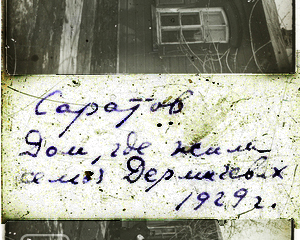 Саратов
Дом, где жила
семья Дермичевых
1929 г.